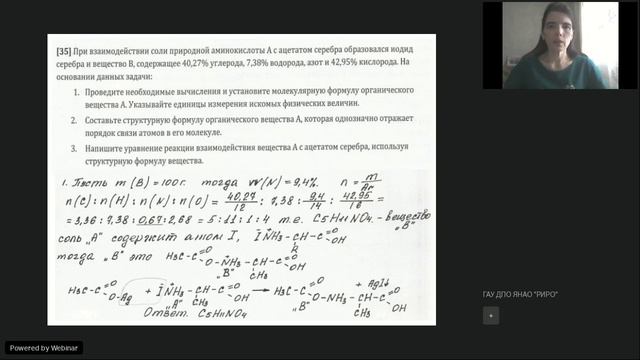 [35] При взаимодействии соли природной аминокислоты А с ацетатом серебра образовался иодид
серебра и вещество В, содержащее 40,27% углерода, 7,38% водорода, азот и 42,95% кислорода. На
основании данных задачи:
1. Проведите необходимые вычисления и установите молекулярную формулу органического
вещества А. Указывайте единицы измерения искомых физических величин.
2. Составьте структурную формулу органического вещества А, которая однозначно отражает
порядок связи атомов в его молекуле.
3. Напишите уравнение реакции взаимодействия вещества А с ацетатом серебра, используя
структурную формулу вещества.
1. Пусть m (B) = 100 г. тогда w(N) = 9,4%. n = m/Ar
n(C) : n(H) : n(N) : n(O) = 40,27/12 : 7,38 : 9,4/14 : 42,95/16 =
= 3,36 : 7,38 : 0,67 : 2,68 = 5 : 11 : 1 : 4 т.е. C5H11NO4 - вещество "В"
соль "А" содержит атом I, INH3-CH-C=O OH
R
тогда "В" это H3C-C=O O-NH3-CH-C=O OH
"В" CH3
H3C-C=O O-Ag + INH3-CH-C=O OH → H3C-C=O O-NH3-CH-C=O OH + AgI↓
"А" CH3 "В" CH3
Ответ. C5H11NO4
ГАУ ДПО ЯНАО "РИРО"
Powered by Webinar